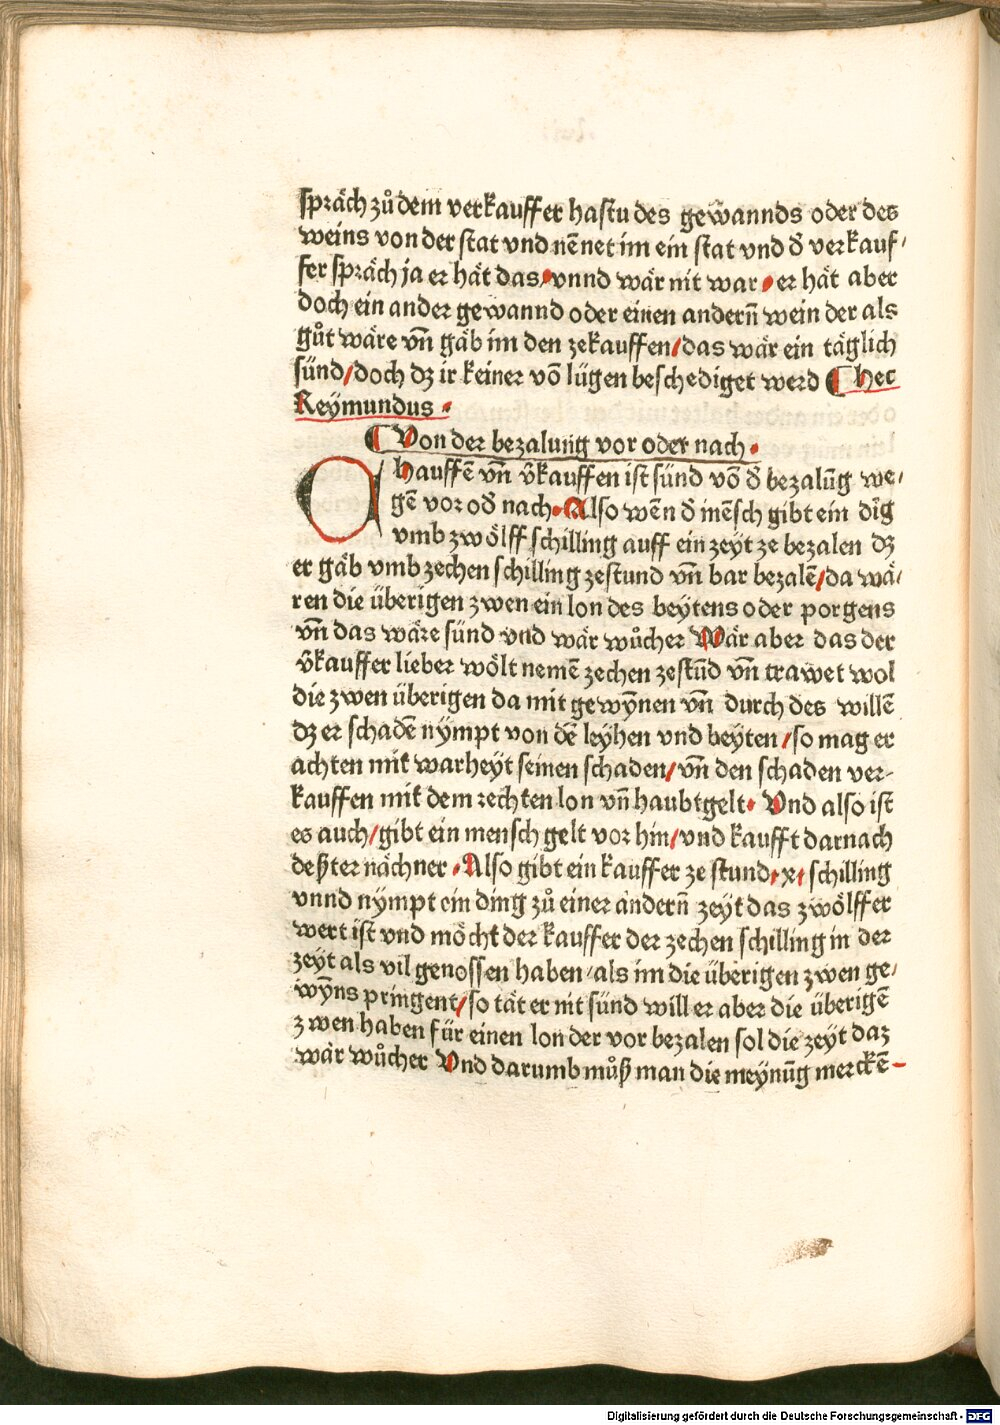 spräch zů dem verkauffer hastu des gewannds oder des
weins von der stat vnd nēnet im ein stat vnd d̄ verkauf⸗
fer spräch ja er hät das. vnnd wär nit war. er hät aber
doch ein ander gewannd oder einen andern̄ wein der als
gůt wäre vn̄ gäb im den ze kauffen/das wär ein täglich
sünd/doch dz ir keiner vō lügen beschediget werd ⸿ hec
Reymundus.
⸿ Von der bezalung vor oder nach.
Chauffē vn̄ v̄kauffen ist sünd vō d̄ bezalūg we⸗
gē vor od̄ nach. Also wēn d̄ mēsch gibt ein dīg
vmb zwölff schilling auff ein zeyt ze bezalen dz
er gäb vmb zechen schilling zestund vn̄ bar bezalē/da wä⸗
ren die überigen zwen ein lon des beytens oder porgens
vn̄ das wäre sünd vnd wär wůcher Wär aber das der
v̄kauffer lieber wölt nemē zechen zestūd vn̄ trawet wol
die zwen überigen da mit gewȳnen vn̄ durch des willē
dz er schadē nympt von dē leyhen vnd beyten/so mag er
achten mit warheyt seinen schaden/vn̄ den schaden ver-
kauffen mit dem rechten lon vn̄ haubtgelt. Vnd also ist
es auch/gibt ein mensch gelt vor hin/vnd kaufft darnach
deßter nächner. Also gibt ein kauffer ze stund.x. schilling
vnnd nympt ein ding zů einer andern̄ zeyt das zwölffer
wert ist vnd möcht der kauffer der zechen schilling in der
zeyt als vil genossen haben/als im die überigen zwen ge⸗
wȳns pringent/so tät er nit sünd will er aber die überigē
zwen haben für einen lon der vor bezalen sol die zeyt daz
wär wůcher Vnd darumb můß man die meynūg merckē-
Digitalisierung gefördert durch die Deutsche Forschungsgemeinschaft - DFG